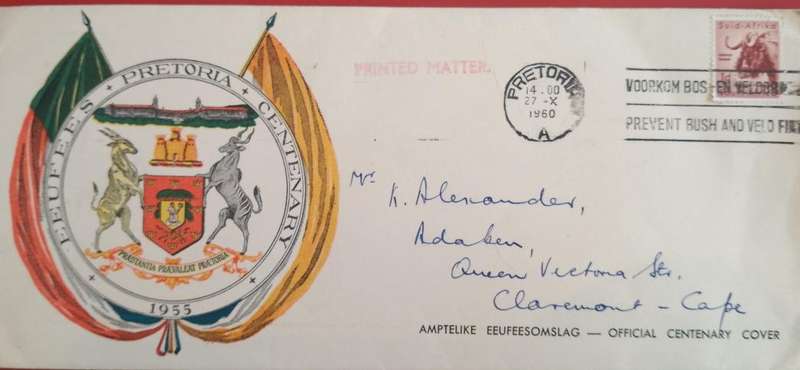 EEUFEES • PRETORIA • CENTENARY
PRÆSTANTIA PRÆVALEAT PRETORIA
1955
PRINTED MATTER.
PRETORIA
14.00
27-X
1960
A
Suid-Afrika
VOORKOM BOS- EN VELDBR
PREVENT BUSH AND VELD FIR
Mr K. Alexander,
Adaken,
Queen Victoria Str.
Claremont – Cape
AMPTELIKE EEUFEESOMSLAG — OFFICIAL CENTENARY COVER